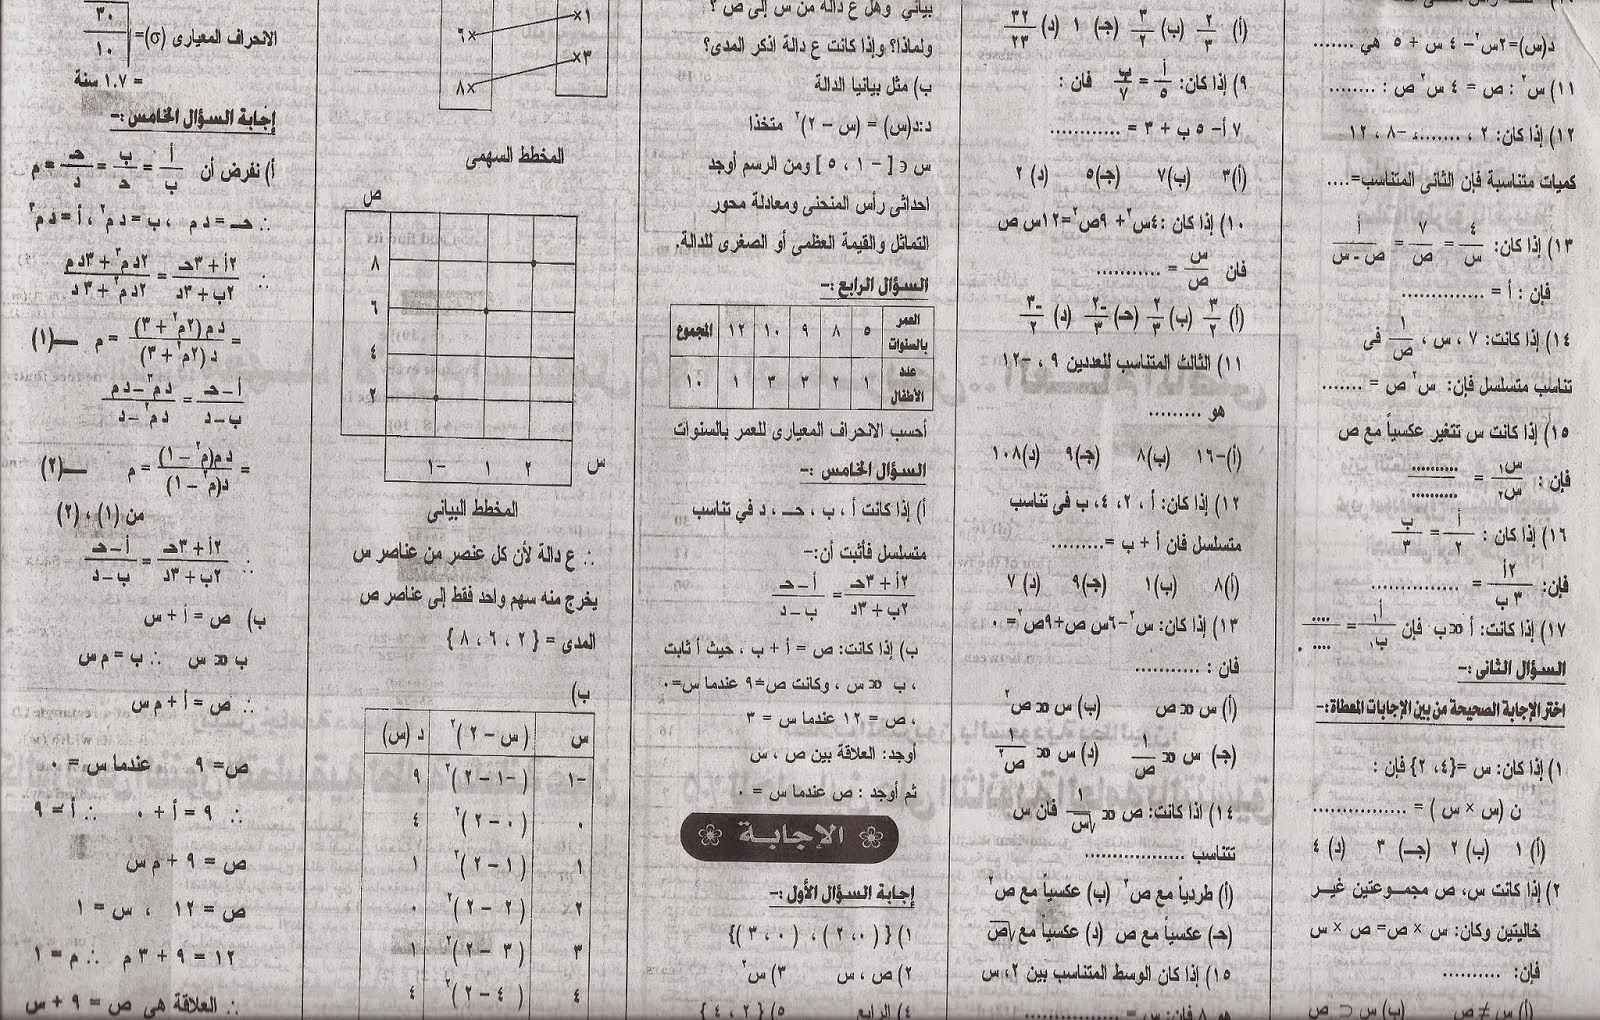 د(س)=٢س٢– ٤ س + ٥ هي ........
١١) س٢ : ص = ٤ س٢ ص : ........
١٢) إذا كان: ٢ ، ........، –٨ ، ١٢
كميات متناسبة فإن الثانى المتناسب=....
١٣) إذا كان: ٤/س = ٧/ص = أ/ص - س
فإن : أ = ..............
١٤) إذا كانت: ٧ ، س ، ١/ص فى
تناسب متسلسل فإن: س٢ ص = .......
١٥) إذا كانت س تتغير عكسياً مع ص
فإن : س١/س٢ = ........../..........
١٦) إذا كان : أ/٢ = ب/٣
فإن: ٢أ/٣ب = ...............
١٧) إذا كانت: أ ∝ ب فإن أ١/ب١ = ..../....
السؤال الثانى :-
اختر الإجابة الصحيحة من بين الإجابات المعطاة:-
١) إذا كان: س ={٤، ٢} فإن :
ن (س × س ) = ................
(أ) ١ (ب) ٢ (جـ) ٣ (د) ٤
٢) إذا كانت س، ص مجموعتين غير
خاليتين وكان: س × ص= ص × س
فإن: ..........
(أ) س ≠ ص (ب) س ⊂ ص
(أ) ٢/٣ (ب) ٣/٢ (جـ) ١ (د) ٣٢/٢٣
٩) إذا كان: أ/٥ = ب/٧ فإن :
٧ أ– ٥ ب + ٣ = ............
(أ)٣ (ب)٧ (جـ)٥ (د) ٢
١٠) إذا كان :٤س٢+ ٩ص٢=١٢س ص
فان س/ص = ...........
(أ) ٣/٢ (ب) ٢/٣ (حـ) -٢/٣ (د) -٣/٢
١١) الثالث المتناسب للعددين ٩ ، –١٢
هو .........
(أ)–١٦ (ب)٨ (جـ)٩ (د)١٠٨
١٢) إذا كان: أ ، ٢ ، ٤، ب فى تناسب
متسلسل فان أ + ب =.........
(أ)٨ (ب)١ (جـ)٩ (د) ٧
١٣) إذا كان: س٢–٦س ص+٩ص٢= ٠
فان : ...........
(أ) س ∝ ص (ب) س ∝ ص٢
(جـ) س ∝ ١/ص (د) س ∝ ١/ص٢
١٤) اذا كانت: ص ∝ ١/√س فان س
تتناسب .................
(أ) طردياً مع ص٢ (ب) عكسياً مع ص٢
(حـ) عكسياً مع ص (د) عكسياً مع √ص
١٥) إذا كان الوسط المتناسب بين ٢، س
هو ٨ فإن: س = ................
بياني وهل ع دالة من س إلى ص ؟
ولماذا؟ وإذا كانت ع دالة اذكر المدى؟
ب) مثل بيانيا الدالة
د:د(س) = (س – ٢)٢ متخذا
س ∋ [ –١ ، ٥ ] ومن الرسم أوجد
احداثى رأس المنحنى ومعادلة محور
التماثل والقيمة العظمى أو الصغرى للدالة.
السؤال الرابع :-
العمر بالسنوات ٥ ٨ ٩ ١٠ ١٢ المجموع
عدد الأطفال ١ ٢ ٣ ٣ ١ ١٠
أحسب الانحراف المعيارى للعمر بالسنوات
السؤال الخامس :-
أ) إذا كانت أ ، ب ، حـ ، د في تناسب
متسلسل فأثبت أن:-
٢أ + ٣حـ/٢ب + ٣د = أ – حـ/ب – د
ب) إذا كانت: ص = أ + ب ، حيث أ ثابت
، ب ∝ س ، وكانت ص=٩ عندما س=٠
، ص = ١٢ عندما س = ٣
أوجد: العلاقة بين ص ، س
ثم أوجد : ص عندما س = ٠
الإجابة
إجابة السؤال الأول :-
١) { (٢،٠ ) ، (٣ ، ٠ )}
٢) ص ، س ٣) س٢
٤) الرابع ٥) { ٢ ، ٤ }
×١
×٦
×٣
×٨
المخطط السهمى
ص
٨
٦
٤
٢
–١ ١ ٢ س
المخطط البيانى
∴ ع دالة لأن كل عنصر من عناصر س
يخرج منه سهم واحد فقط إلى عناصر ص
المدى = { ٢ ، ٦ ، ٨ }
ب)
س ( س – ٢ )٢ د (س)
–١ ( –١ – ٢ )٢ ٩
٠ ( ٠ – ٢ )٢ ٤
١ ( ١ – ٢ )٢ ١
٢ ( ٢ – ٢ )٢ ٠
٣ ( ٣ – ٢ )٢ ١
٤ ( ٤ – ٢ )٢ ٤
الانحراف المعيارى (σ)= √٣٠/١٠
= ١.٧ سنة
إجابة السؤال الخامس :-
أ) نفرض أن أ/ب = ب/حـ = حـ/د = م
∴ حـ = د م ، ب = د م٢ ، أ = د م٣
∴ ٢أ + ٣حـ/٢ب + ٣د = ٢د م٣ + ٣د م/٢د م٢ + ٣ د
= د م (٢م٢ + ٣)/د (٢م٢ + ٣) = م ــ(١)
أ – حـ/ب – د = د م٣ – د م/د م٢ – د
= د م(م٢ – ١)/د(م٢ – ١) = م ــ(٢)
من (١) ، (٢)
∴ ٢أ + ٣حـ/٢ب + ٣د = أ – حـ/ب – د
ب) ص = أ + س
ب ∝ س ∴ ب = م س
∴ ص = أ + م س
ص= ٩ عندما س = ٠
∴ ٩ = أ + ٠ ∴ أ = ٩
ص = ٩ + م س
ص = ١٢ ، س = ١
١٢ = ٩ + ٣ م ∴ م = ١
∴ العلاقة هى ص = ٩ + س